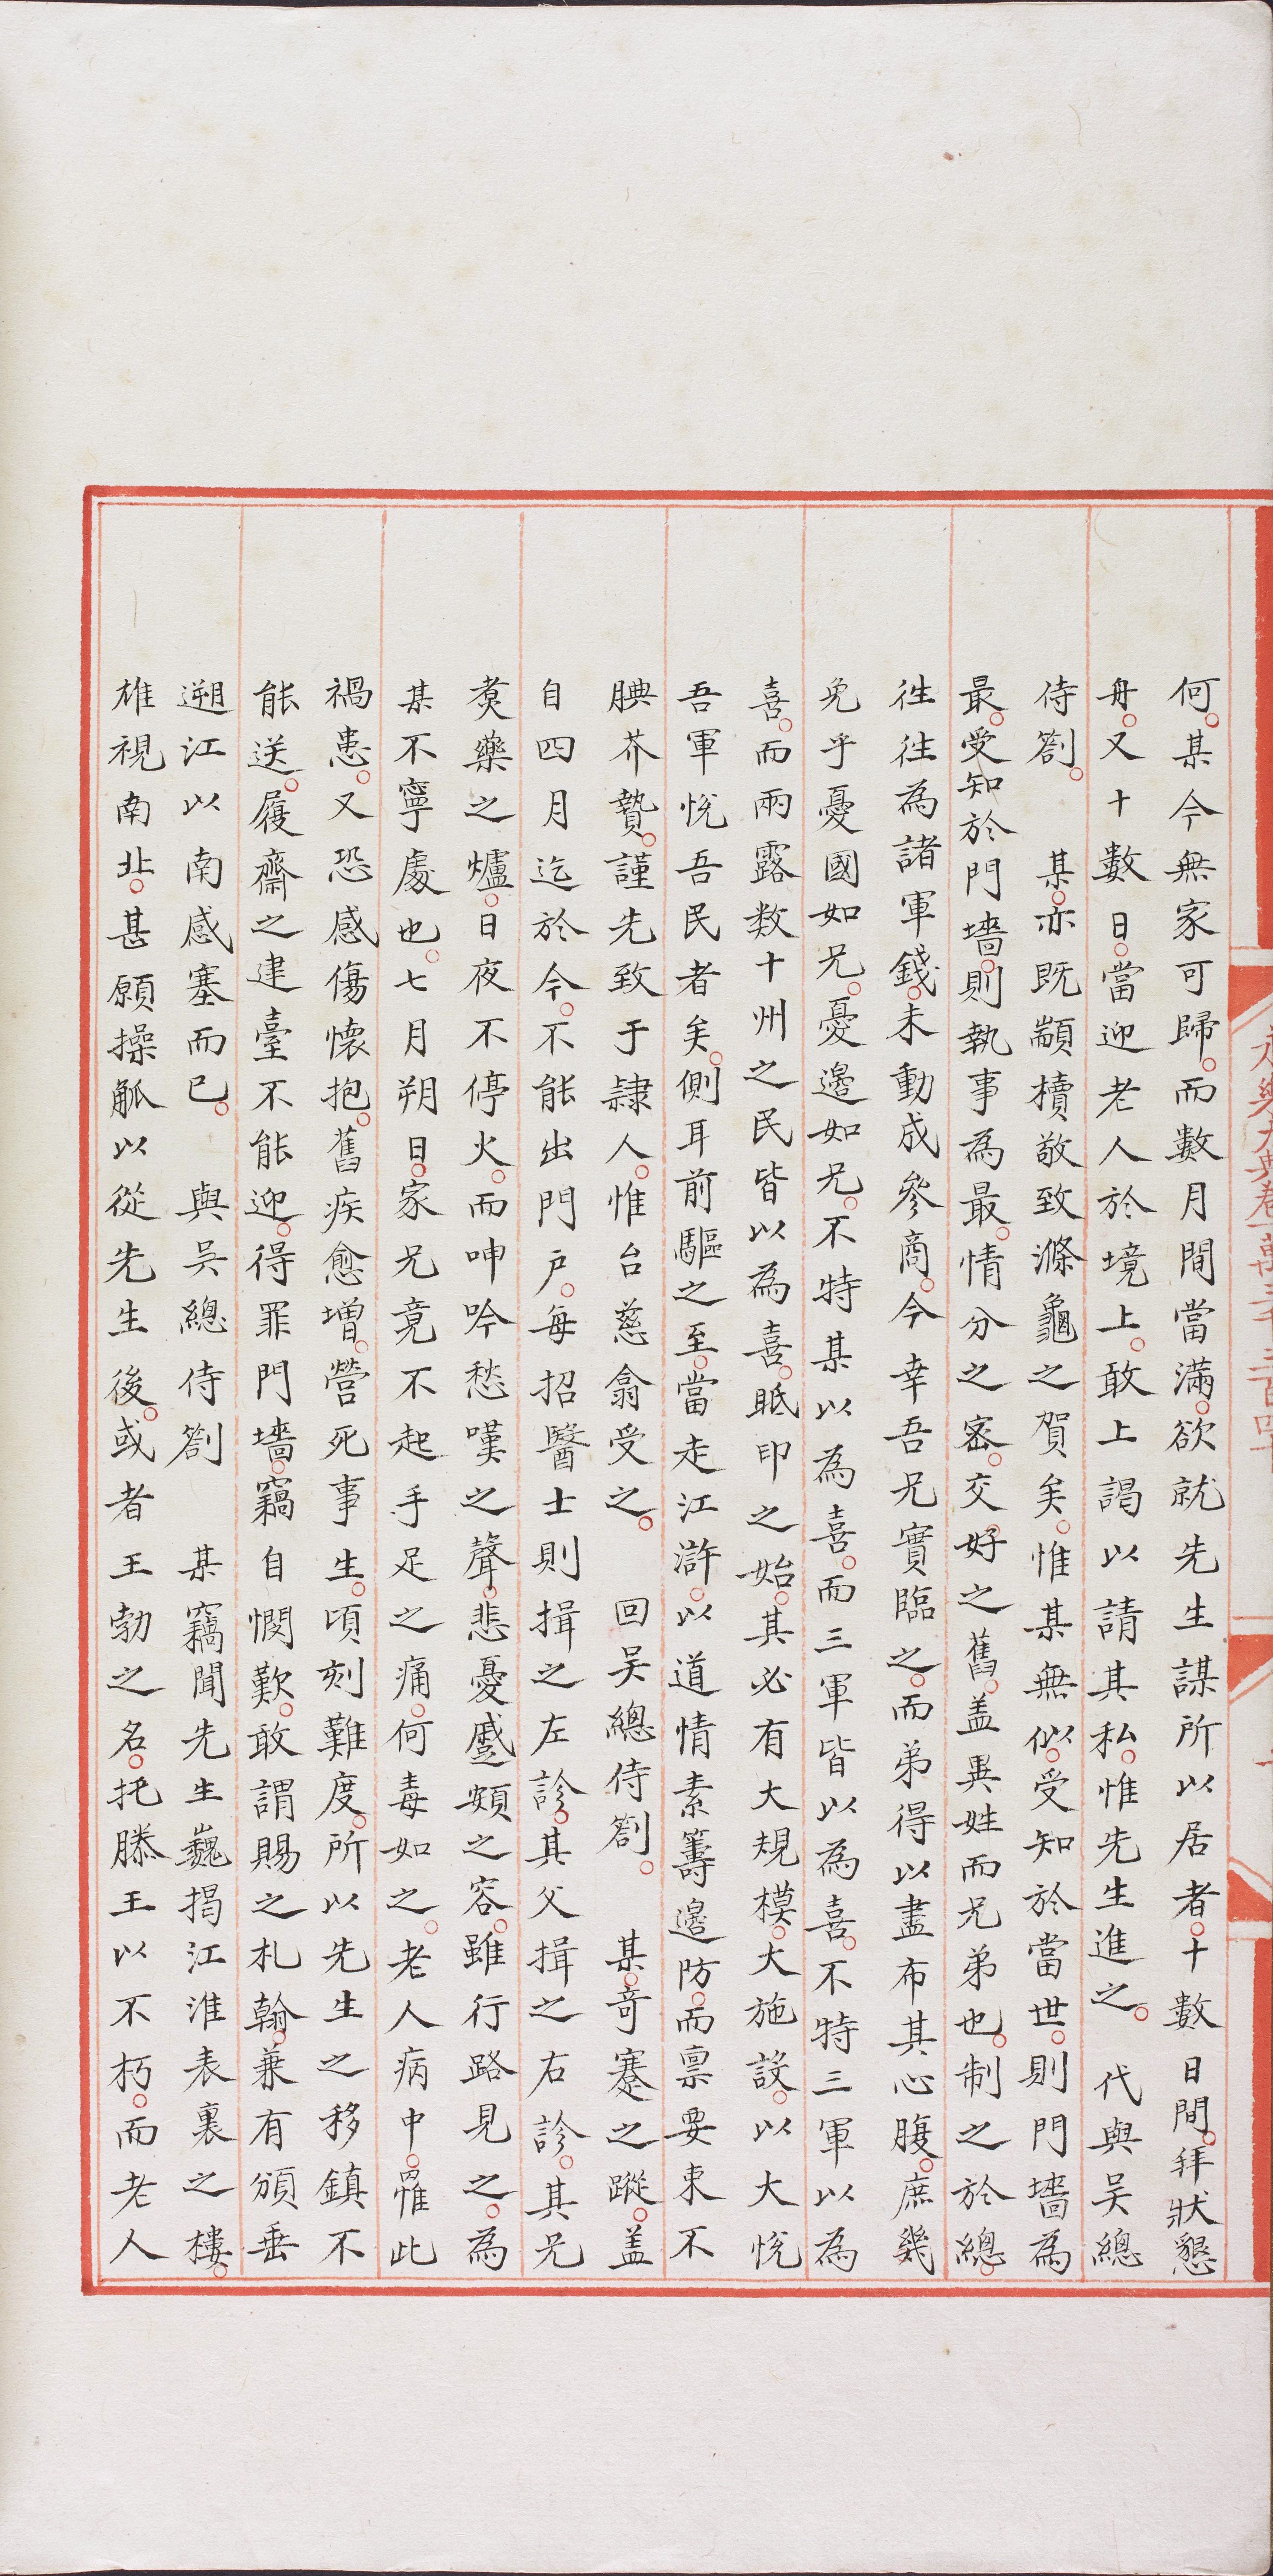 何。某今無家可歸。而數月間當滿。欲就先生謀所以居者。十數日間。拜狀懇
舟。又十數日。當迎老人於境上。敢上謁以請其私。惟先生進之。　代與吳總
侍劄。　某。亦既顓櫝敬致滌龜之賀矣。惟某無似。受知於當世。則門墻為
最。受知於門墻。則執事為最。情分之密。交好之舊。盖異姓而兄弟也。制之於總。
徃徃為諸軍錢。未動成參商。今幸吾兄實臨之。而弟得以盡布其心腹。庶幾
免乎憂國如兄。憂邊如兄。不特某以為喜。而三軍皆以為喜。不特三軍以為
喜。而兩露数十州之民皆以為喜。眡印之始。其必有大規模。大施設。以大悅
吾軍悅吾民者矣。側耳前驅之至。當走江滸。以道情素籌邊防。而禀要束不
腆芥贄。謹先致于隷人。惟台慈翕受之。　回吳總侍劄。　某。竒蹇之蹤。盖
自四月迄於今。不能出門戶。每招醫士則揖之左診。其父揖之右診。其兄
煑藥之爐。日夜不停火。而呻吟愁嘆之聲。悲憂蹙頞之容。雖行路見之。為
某不寧處也。七月朔日。家兄竟不起手足之痛。何毒如之。老人病中。罹此
禍患。又恐感傷懐抱。舊疾愈增。營死事生。頃刻難度。所以先生之移鎮不
能送。履齋之建臺不能迎。得罪門墻。竊自憫歎。敢謂賜之札翰。兼有頒垂
遡江以南感塞而已。　與吳總侍劄　某竊聞先生巍揭江淮表裏之樓。
雄視南北。甚願操觚以從先生後。或者王勃之名。托滕王以不朽。而老人
永樂大典卷一萬三千